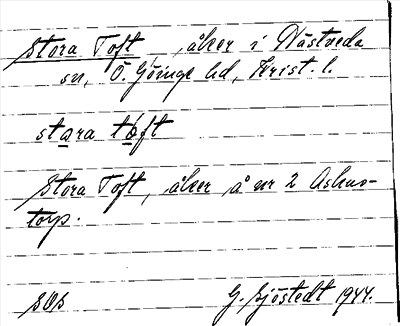 Stora Toft, åker i Nästveda
sn, Ö. Göinge hd, Krist. l.
stara tåft
Stora Toft, åker å nr 2 Askas-
torp.
G. Sjöstedt 1944.